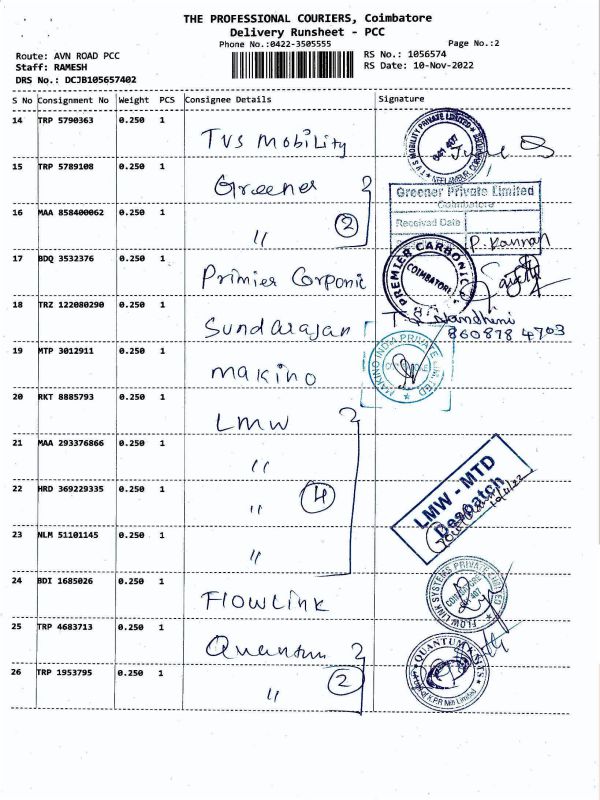 THE PROFESSIONAL COURIERS, Coimbatore
Delivery Runsheet - PCC
Phone No.:0422-3505555
Page No.:2
Route: AVN ROAD PCC
RS No.: 1056574
Staff: RAMESH
RS Date: 10-Nov-2022
DRS No.: DCJB105657402
S No Consignment No Weight PCS Consignee Details Signature
14 TRP 5790363 0.250 1
TVS Mobility
TVS MOBILITY PRIVATE LIMITED
641 407
15 TRP 5789108 0.250 1
Greener
Greener Private Limited
Coimbatore
Received Date
16 MAA 858400062 0.250 1
" 2
P. Kannan
17 BDQ 3532376 0.250 1
Primier Corponic
PREMIER CARBONIC
COIMBATORE
18 TRZ 122080290 0.250 1
Sundarajan
Nandhini
860878 4703
19 MTP 3012911 0.250 1
Makino
MAKINO INDIA PRIVATE LIMITED
20 RKT 8885793 0.250 1
LMW
21 MAA 293376866 0.250 1
"
LMW - MTD
Despatch
22 HRD 369229335 0.250 1
" 4
23 NLM 51101145 0.250 1
"
24 BDI 1685026 0.250 1
FlowLink
FLOW LINK SYSTEMS PRIVATE LIMITED
25 TRP 4683713 0.250 1
Quantum
QUANTUM KNITS
26 TRP 1953795 0.250 1
" 2